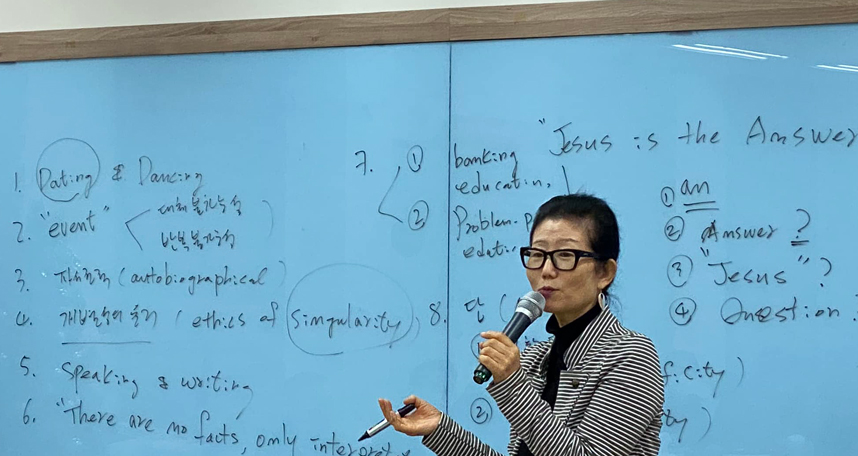 1. Dating & Dancing
2. "event" < 대체불가능성
반복불가능성
3. 자서전적 (autobiographical)
4. 개별성의 윤리 (ethics of Singularity)
5. Speaking & writing
6. "There are no facts, only
7. ①
②
banking
educatin,
Problem
8. 답 (
②
"Jesus is the Answer
① an
② Answer ?
③ "Jesus" ?
④ Question